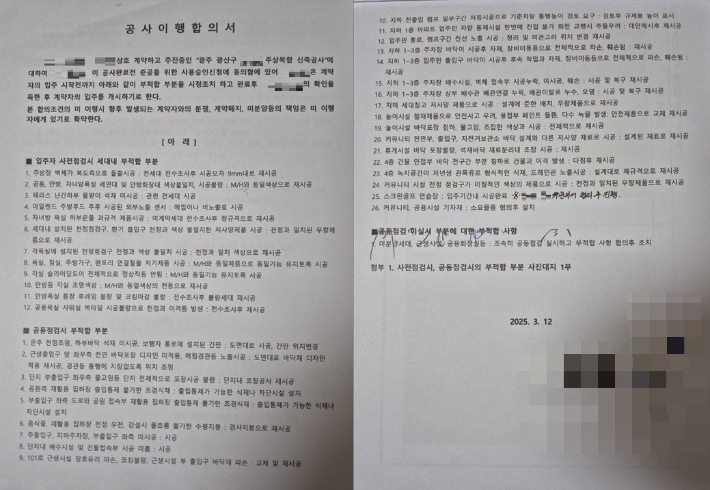 공 사 이 행 합 의 서
상호 계약하고 추진중인 "광주 광산구 주상복합 신축공사"에
대하여 이 공사완료전 준공을 위한 사용승인신청에 동의함에 있어 은 계약
자의 입주 시작전까지 아래와 같이 부적합 부분을 시정조치 하고 완료후 여의 확인을
득한 후 계약자의 입주를 개시하기로 한다.
본 합의조건의 미 이행시 향후 발생되는 계약자와의 분쟁, 계약해지, 미분양등의 책임은 미 이행
자에게 있기로 확약한다.
[ 아 래 ]
■ 입주자 사전점검시 세대내 부적합 부분
1. 주방창 벽체가 복도측으로 돌출시공 : 전세대 전수조사후 시공오차 9mm내로 재시공
2. 공용, 안방, 자녀방욕실 세면대 및 안방화장대 색상불일치, 시공불량 : M/H와 동일색상으로 재시공
3. 테라스 난간하부 물받이 석재 미시공 : 관련 전세대 시공
4. 아일랜드 주방후드 추후 시공된 외부노출 센서 : 매립이나 비노출로 시공
5. 자녀방 욕실 하부문틀 과규격 제품시공 : 마계약세대 전수조사후 정규격으로 재시공
6. 세대내 설치된 천정점검구, 환기 흡입구 천정과 색상 불일치한 저사양제품 시공 : 천정과 일치된 우량제
품으로 재시공
7. 각욕실에 설치된 천정점검구 천정과 색상 불일치 시공 : 천정과 일치 색상으로 재시공
8. 욕실, 침실, 주방가구, 팬트리 연결철물 저가제품 시공 : M/H와 동일제품으로 동일기능 유지토록 시공
9. 각실 슬라이딩도어 전체적으로 정상작동 안됨 : M/H와 동일기능 유지토록 시공
10. 안방등 각실 조명색상 : M/H와 동일색상의 전등으로 재시공
11. 안방욕실 통창 후레임 불량 및 코킹마감 불량 : 전수조사후 불량세대 재시공
12. 공용욕실 샤워실 벽타일 시공불량으로 천정과 이격등 발생 : 전수조사후 재시공
■ 공동점검시 부적합 부분
1. 문주 천정조명, 하부바닥 석재 미시공, 보행자 통로에 설치된 간판 : 도면대로 시공, 간판 위치변경
2. 근생출입구 앞 좌우측 전면 바닥포장 디자인 미적용, 매립경관등 노출시공 : 도면대로 바닥재 디자인
적용 재시공, 경관등 통행에 지장없도록 위치 조정
3. 단지 부출입구 좌우측 물고임등 단지 전체적으로 포장시공 불량 : 단지내 포장공사 재시공
4. 공원측 재활용 집하장 출입통제 불가한 조경식재 : 출입통제가 가능한 식재나 차단시설 설치
5. 부출입구 좌측 도로와 공원 접속부 재활용 집하장 출입통제 불가한 조경식재 : 출입통제가 가능한 식재나
차단시설 설치
6. 음식물, 재활용 집하장 천정 우천, 강설시 물흐름 불가한 수평지붕 : 경사지붕으로 재시공
7. 주출입구, 지하주차장, 부출입구 좌측 미시공 : 시공
8. 단지내 배수시설 및 건물접속부 시공 미흡 : 시공
9. 101호 근생시설 창호유리 파손, 코킹불량, 근생시설 부 출입구 바닥재 파손 : 교체 및 재시공
10. 지하 진출입 램프 일부구간 처짐시공으로 기준치량 통행높이 검토 요구 : 검토후 규제봉 높이 표시
11. 지하 1층 아파트 입주민 차량 통제시설 한번에 진입 불가 회전 교행시 추돌우려 : 대안제시후 재시공
12. 입주면 통로, 램프구간 전선 노출 시공 : 정리 및 미관고려 위치 변경 재시공
13. 지하 1~3층 주차장 바닥이 시공후 자재, 장비이동등으로 전체적으로 파손, 훼손됨 : 재시공
14. 지하 1~3층 입주면 출입구 바닥이 시공후 후속 작업과 자재, 장비이동등으로 전체적으로 파손, 훼손됨 :
재시공
15. 지하 1~3층 주차장 배수시설, 벽체 접속부 시공누락, 미시공, 훼손 : 시공 및 복구 재시공
16. 지하 1~3층 주차장 상부 배수관 배관연결 누락, 배관이탈로 누수, 오염 : 시공 및 복구 재시공
17. 지하 세대창고 저사양 제품으로 시공 : 설계에 준한 배치, 우량제품으로 재시공
18. 놀이시설 철재제품으로 안전사고 우려, 용접부 페인트 들뜸, 다수 녹물 발생: 안전제품으로 교체 재시공
19. 놀이시설 바닥포장 침하, 물고임, 조잡한 색상과 시공 : 전체적으로 재시공
20. 커뮤니티 전면부, 출입구, 자전거보관소 바닥 설계와 다른 저사양 재료로 시공 : 설계된 재료로 재시공
21. 휴게시설 바닥 포장불량, 석재바닥 재료분리대 조잡 시공 : 재시공
22. 4층 건물 인접부 바닥 전구간 부분 침하로 건물과 이격 발생 : 다짐후 재시공
23. 4층 녹지공간이 저년생 관목류로 형식적인 식재, 드레인관 노출시공 : 설계대로 제규격으로 재시공
24. 커뮤니티 시설 천정 점검구가 이질적인 색상의 제품으로 시공 : 천정과 일치된 우량제품으로 재시공
25. 스크린골프 연습장 : 입주기간내 시공완료
26. 커뮤니티, 공용시설 기자재 : 소요물품 협의후 설치
■공동점검 미실시 부분에 대한 부적합 사항
1. 미분양세대, 근생시설, 공용화장실등 : 조속히 공동점검 실시하고 부적합 사항 협의후 조치
첨부 1. 사전점검시, 공동점검시의 부적합 부분 사진대지 1부
2025. 3. 12